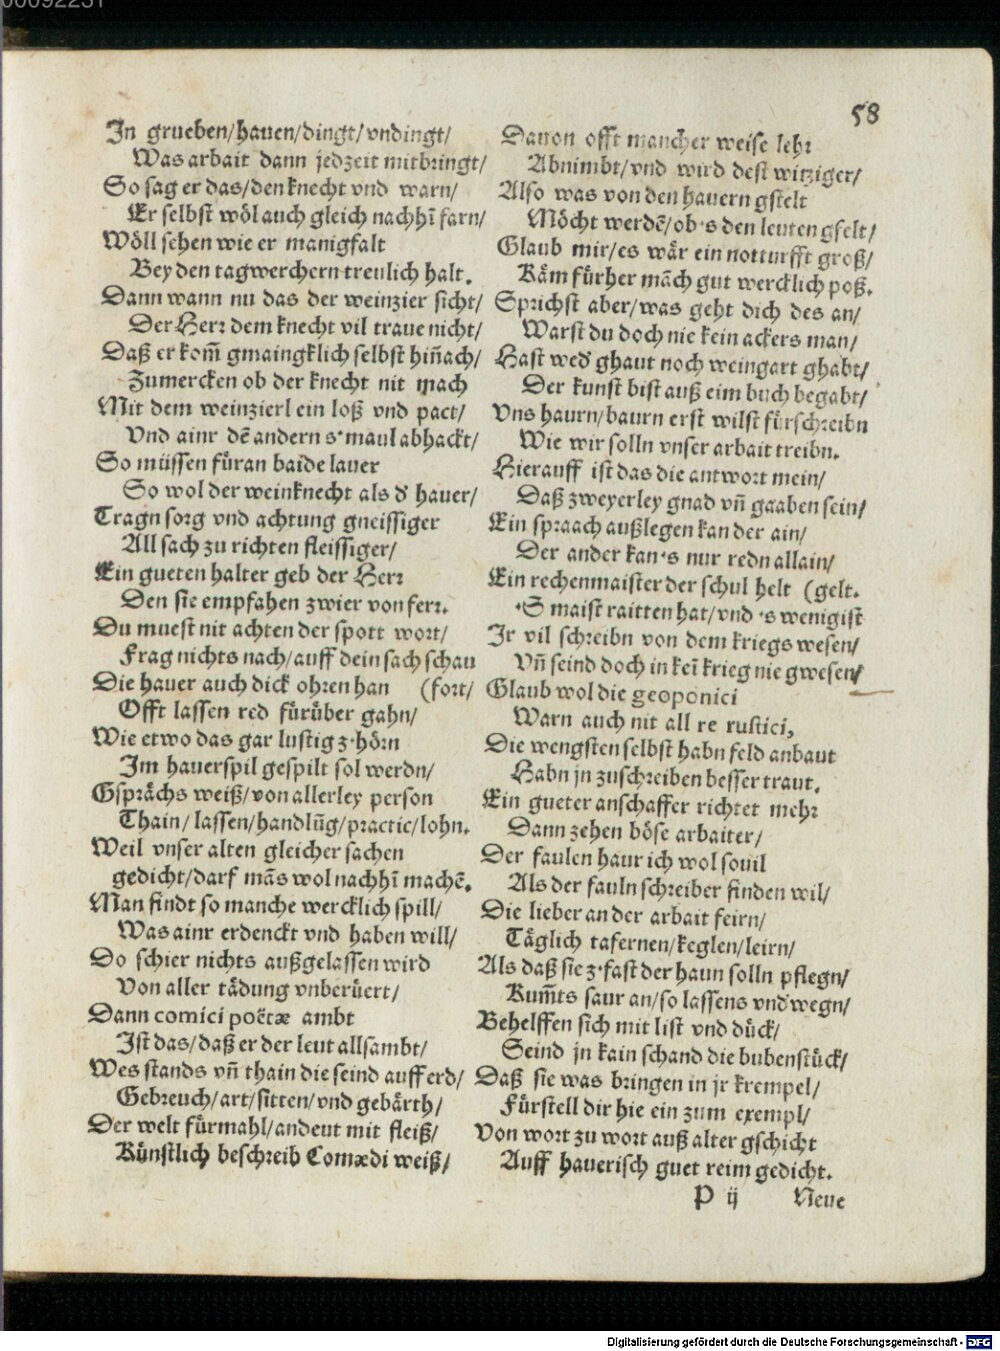 00092231
58
In grueben/hauen/dingt/vndingt/
Was arbait dann jedzeit mitbringt/
So sag er das/den knecht vnd warn/
Er selbst wöl auch gleich nachhī farn/
Wöll sehen wie er manigfalt
Bey den tagwerchern treulich halt.
Dann wann nu das der weinzier sicht/
Der Herr dem knecht vil traue nicht/
Daß er kom̃ gmaingklich selbst hiñach/
Zumercken ob der knecht nit mach
Mit dem weinzierl ein loß vnd pact/
Vnd ainr dẽ andern s'maul abhackt/
So müssen füran baide lauer
So wol der weinknecht als d' hauer/
Tragn sorg vnd achtung gneissiger
All sach zu richten fleissiger/
Ein gueten halter geb der Herr
Den sie empfahen zwier von ferr.
Du muest nit achten der spott wort/
Frag nichts nach/auff dein sach schau
Die hauer auch dick ohren han (fort/
Offt lassen red fürüber gahn/
Wie etwo das gar lustig z'hörn
Im hauerspil gespilt sol werdn/
Gsprächs weiß/von allerley person
Thain/lassen/handlũg/practic/lohn.
Weil vnser alten gleicher sachen
gedicht/darf mãs wol nachhī machẽ.
Man findt so manche wercklich spill/
Was ainr erdenckt vnd haben will/
Do schier nichts außgelassen wird
Von aller tädung vnberüert/
Dann comici poëtæ ambt
Ist das/daß er der leut allsambt/
Wes stands vñ thain die seind auff erd/
Gebreuch/art/sitten/vnd gebärth/
Der welt fürmahl/andeut mit fleiß/
Künstlich beschreib Comædi weiß/
Dauon offt mancher weise lehr
Abnimbt/vnd wird dest witziger/
Also was von den hauern gstelt
Möcht werdẽ/ob's den leuten gfelt/
Glaub mir/es wär ein notturfft groß/
Käm fürher mãch gut wercklich poß.
Sprichst aber/was geht dich des an/
Warst du doch nie kein ackers man/
Hast wed' ghaut noch weingart ghabt/
Der kunst bist auß eim buch begabt/
Vns haurn/baurn erst wilst fürschreibn
Wie wir solln vnser arbait treibn.
Hierauff ist das die antwort mein/
Daß zweyerley gnad vñ gaaben sein/
Ein spraach außlegen kan der ain/
Der ander kan's nur redn allain/
Ein rechenmaister der schul helt (gelt.
'S maist raitten hat/vnd 's wenigist
Ir vil schreibn von dem kriegs wesen/
Vñ seind doch in keī krieg nie gwesen/
Glaub wol die geoponici
Warn auch nit all re rustici,
Die wengsten selbst habn feld anbaut
Habn jn zuschreiben besser traut.
Ein gueter anschaffer richtet mehr
Dann zehen böse arbaiter/
Der faulen haur ich wol souil
Als der fauln schreiber finden wil/
Die lieber an der arbait feirn/
Täglich tafernen/keglen/leirn/
Als daß sie z'fast der haun solln pflegn/
Kum̃ts saur an/so lassens vnd'wegn/
Behelffen sich mit list vnd dück/
Seind jn kain schand die bubenstück/
Daß sie was bringen in jr krempel/
Fürstell dir hie ein zum exempl/
Von wort zu wort auß alter gschicht
Auff hauerisch guet reim gedicht.
P ij Neue
Digitalisierung gefördert durch die Deutsche Forschungsgemeinschaft - DFG